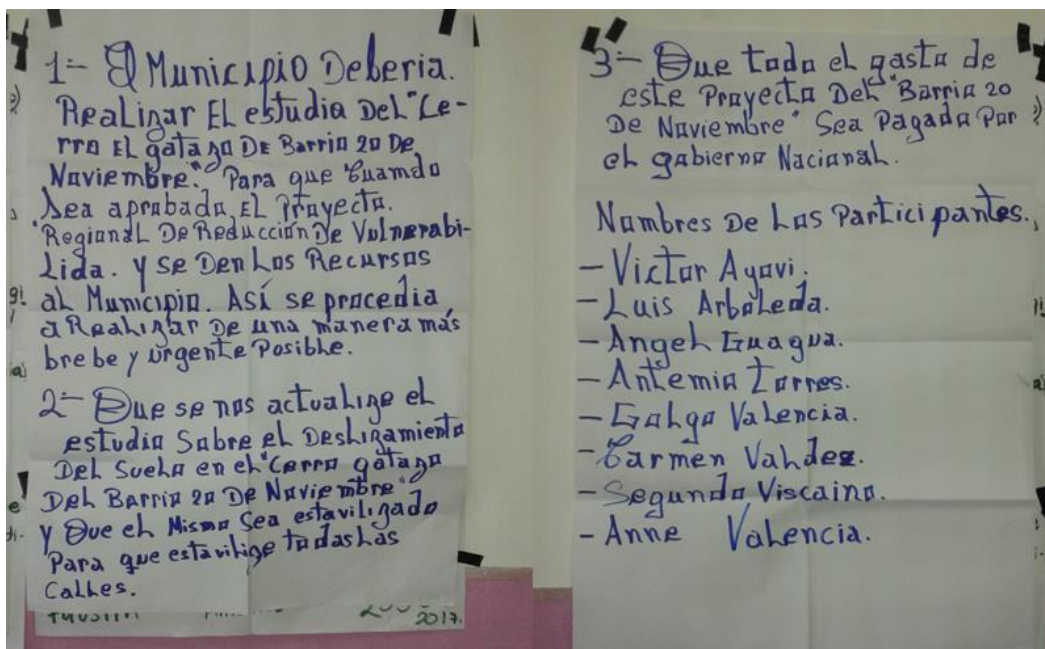 1- El Municipio Deberia.
Realizar El estudio Del "Ce-
rro El gatazo De Barrio 20 De
Noviembre." Para que Cuamdo
Sea aprobado, El Proyecto.
"Regional De Reducción De Vulnerabi-
Lida. y se Den Los Recursos
al Municipio. Así se procedia
a Realizar De una manera más
brebe y urgente Posible.
2- Que se nos actualize el
estudio Sobre el Deslizamiento
Del Suelo en el "Cerro gatazo
Del Barrio 20 De Noviembre"
y Que el Mismo Sea estavilizado
Para que estavilize todas Las
Calles.
2017.
3- Que todo el gasto de
este Proyecto Del "Barrio 20
De Noviembre" Sea Pagado Por
el gobierno Nacional.
Nombres De Los Participantes.
- Victor Ayovi.
- Luis Arboleda.
- Angel Guagua.
- Antemio Torres.
- Galgo Valencia.
- Carmen Valdez.
- Segundo Viscaino.
- Anne Valencia.